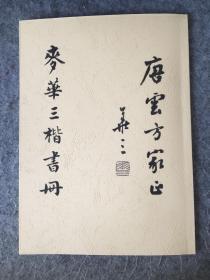 唐雲方家正
華三
麥華三楷書冊